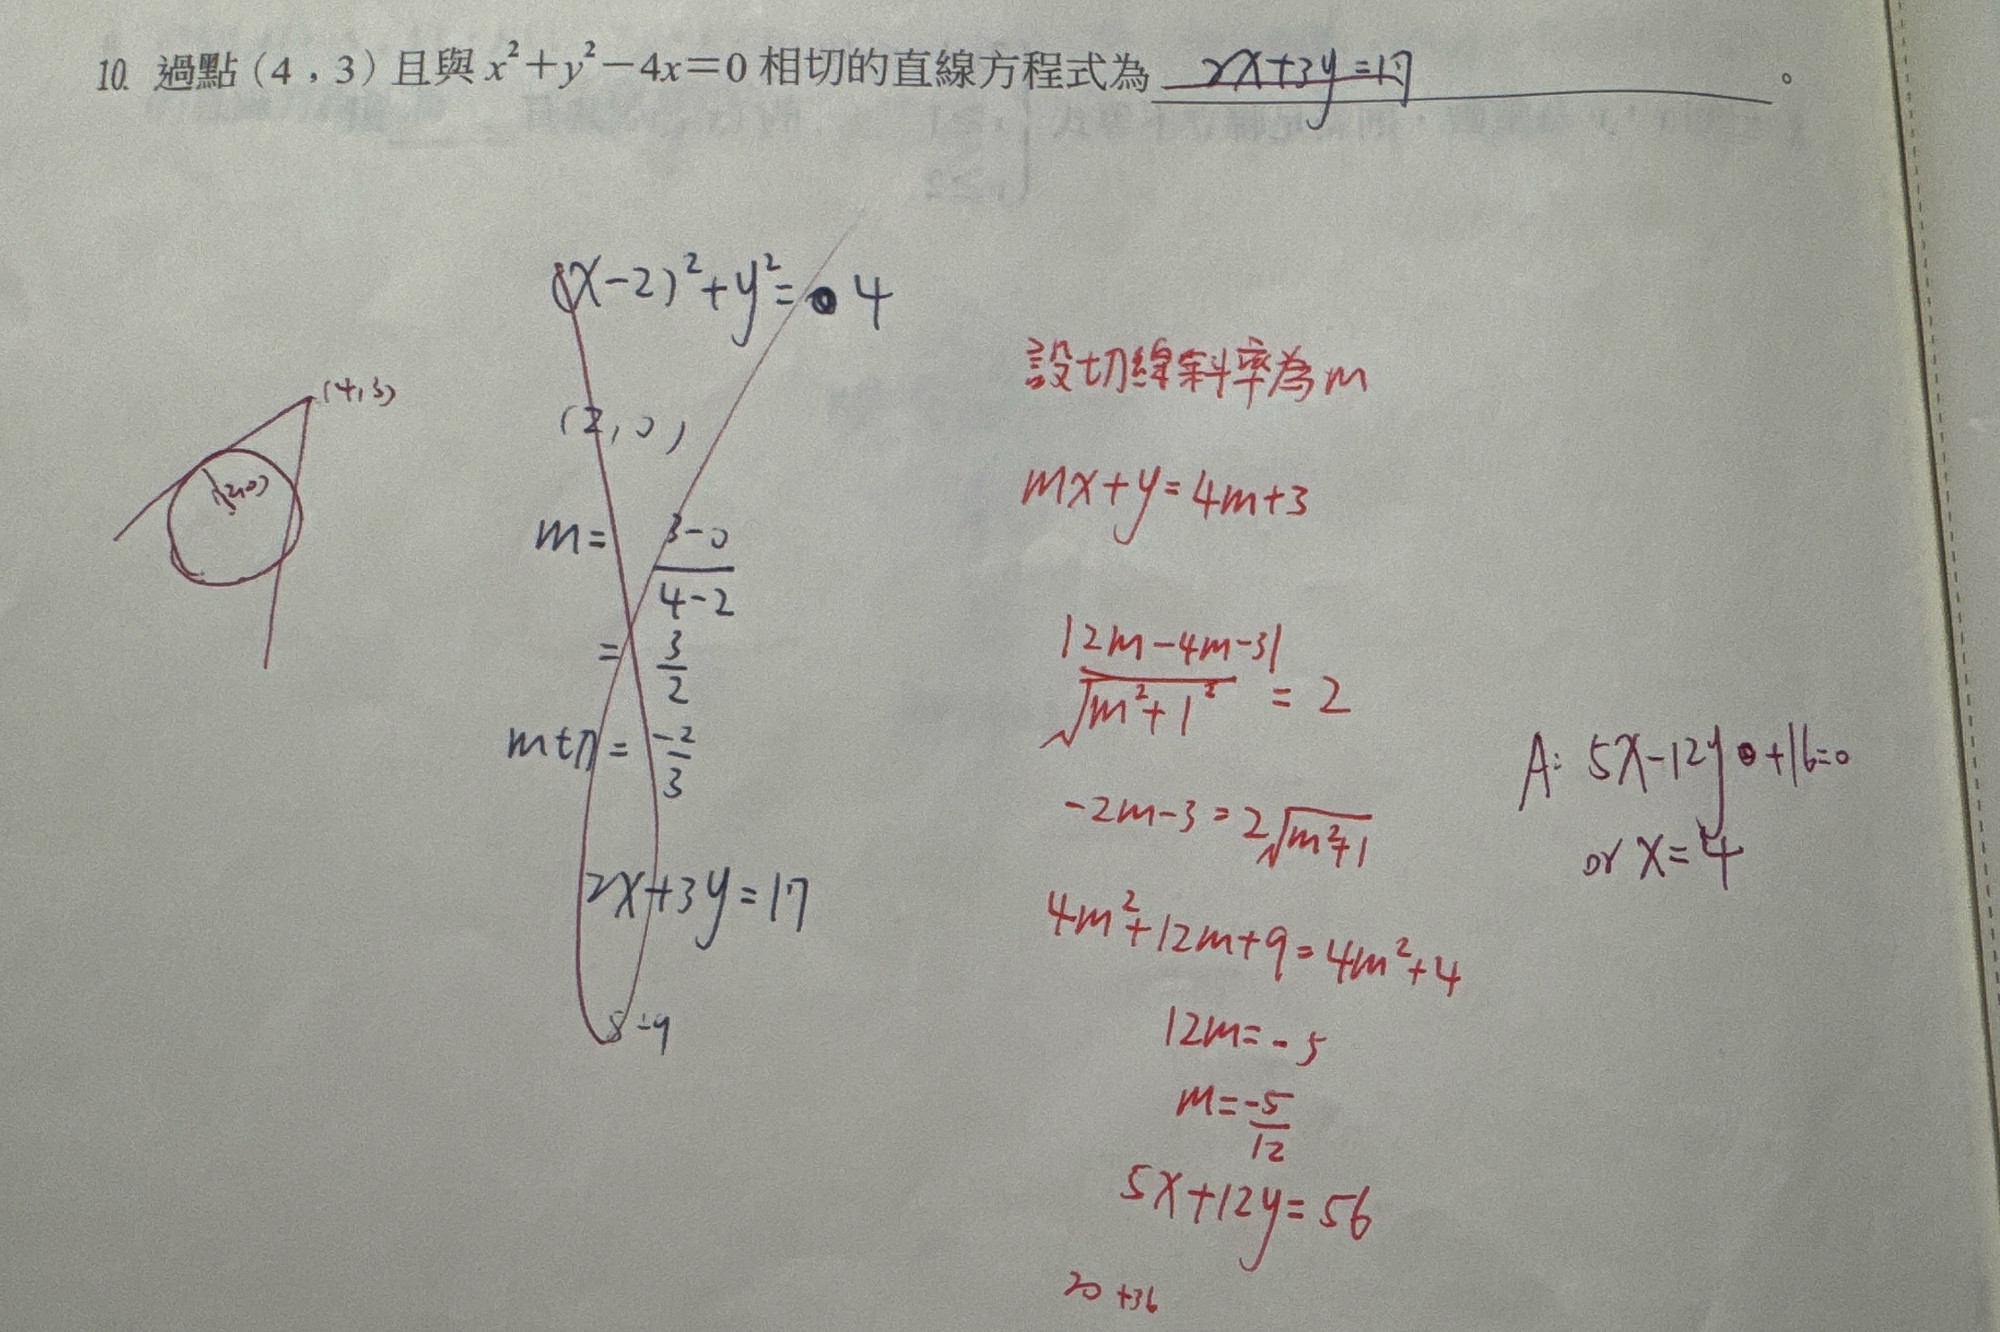 10. 過點(4,3)且與 x²+y²−4x=0 相切的直線方程式為 2x+3y=17 。
(x-2)²+y²= 4
(4,3)
(2,0)
(2,0)
m= 3-0/4-2
= 3/2
m切= -2/3
2x+3y=17
8+9
設切線斜率為m
mx+y=4m+3
|2m-4m-3|/√m²+1² = 2
-2m-3=2√m²+1
4m²+12m+9=4m²+4
12m=-5
m=-5/12
5x+12y=56
20+36
A: 5x-12y+16=0
or x=4